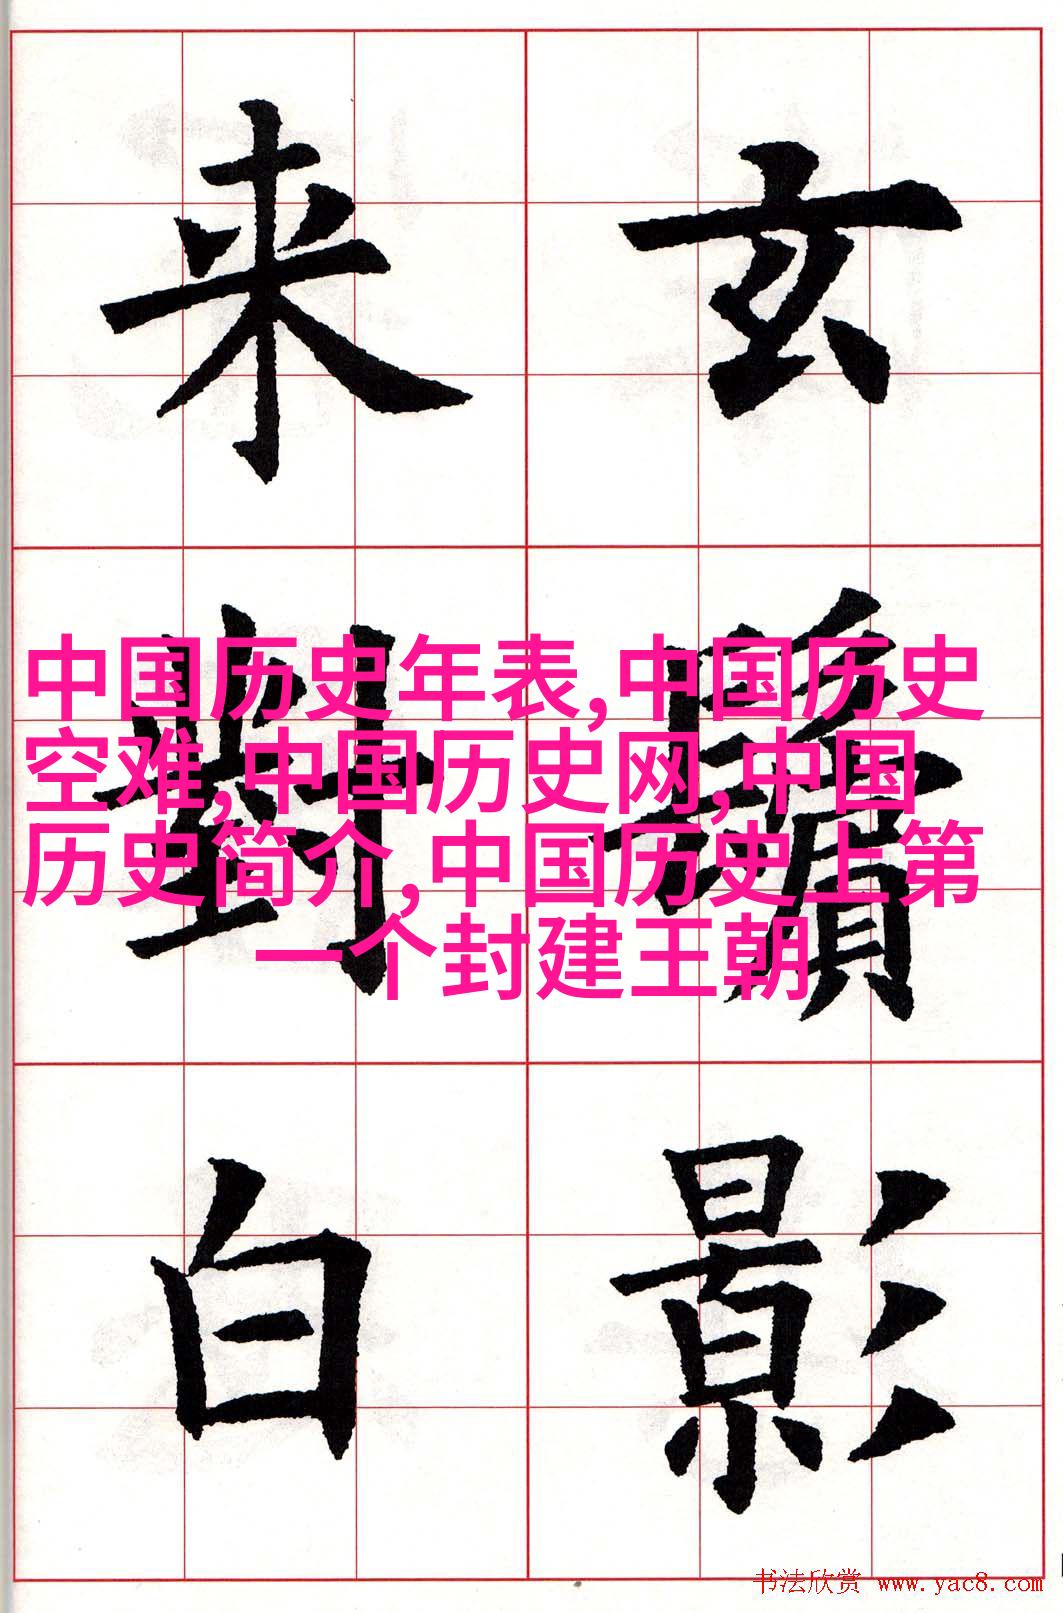 玄鬢影
来對白
中国历史年表,中国历史
空难,中国历史网,中国
历史简介,中国历史上第
一个封建王朝
书法欣赏 www.yac8.com